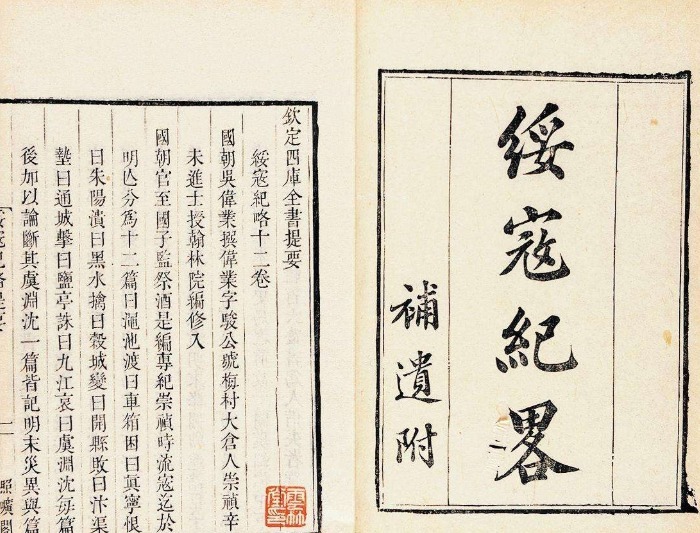 綏寇紀畧
補遺附
欽定四庫全書提要
綏寇紀略十二卷
國朝吳偉業撰偉業字駿公號梅村大倉人崇禎辛
未進士授翰林院編修入
國朝官至國子監祭酒是編專紀崇禎時流寇迄於
明亾分爲十二篇曰澠池渡曰車箱困曰眞寧恨
曰朱陽潰曰黑水擒曰穀城變曰開縣敗曰汴渠
墊曰通城擊曰鹽亭誅曰九江哀曰虞淵沈每篇
後加以論斷其虞淵沈一篇皆記明末災異與篇
一
照曠閣